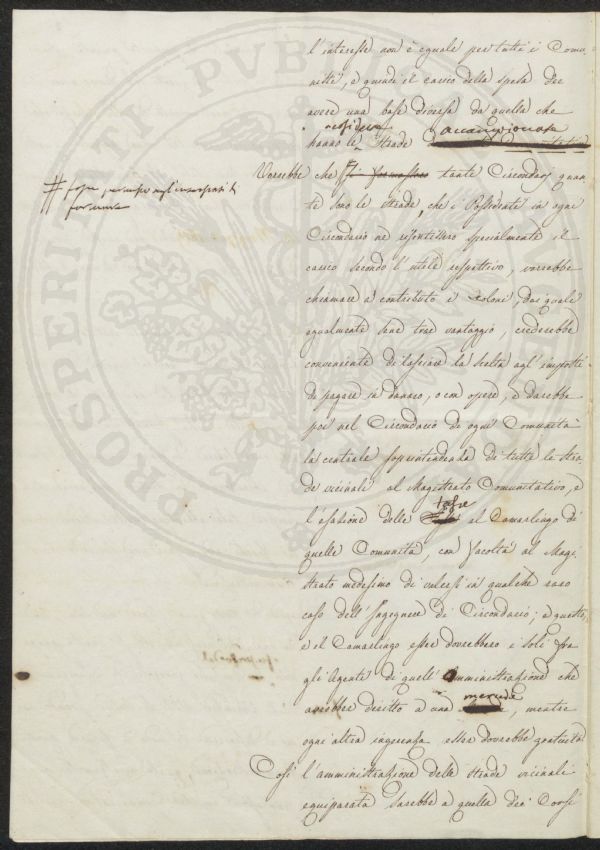 l'interesse non è eguale per tutti i Comu-
nisti, e quindi il carico della spesa dee
avere una base diversa da quella che
residua accennionata
hanno le strade
Vorrebbe che tante Circondarj quan-
te sono le strade, che i Possidenti in ogni
Circondario ne risentissero specialmente il
carico secondo l'utile respettivo, vorrebbe
chiamare a contributo i coloni, dai quali
egualmente sene trae vantaggio, crederebbe
conveniente di lasciare la scelta agl'imposti
di pagare in danaro, o con opere, e darebbe
poi nel Circondario di ogni Comunità
la centrale soprintendenza di tutte le stra-
de vicinali al Magistrato Comunitativo, e
tasse
l'esazione delle al Camarlingo di
quelle Comunità, con facoltà al Magi-
strato medesimo di valersi in qualche raro
caso dell'Ingegnere di Circondario; e questo,
e il Camarlingo esser dovrebbero i soli fra
gli Agenti di quell'Amministrazione che
mercede
avrebbe diritto a una , mentre
ogni altra ingerenza esser dovrebbe gratuita
Così l'amministrazione delle strade vicinali
equiparata sarebbe a quella dei Corsi
PROSPERITATI PUBL